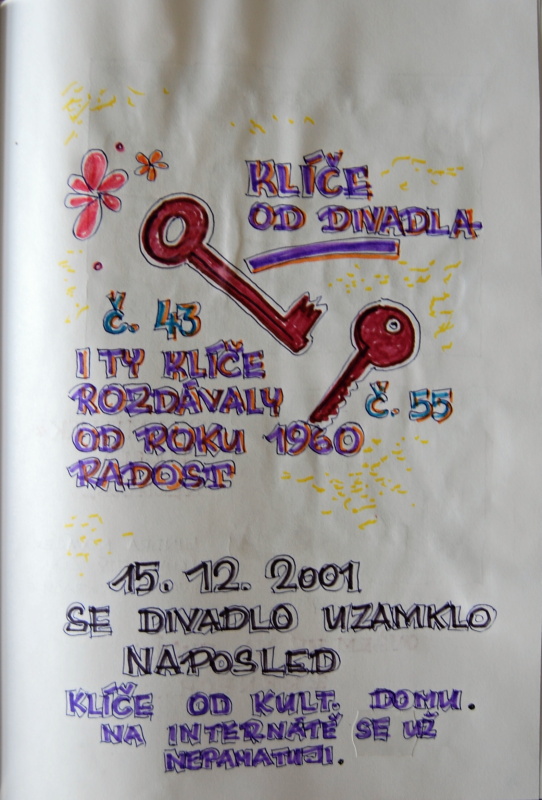 KLÍČE
OD DIVADLA
č. 43
I TY KLÍČE
ROZDÁVALY
č. 55
OD ROKU 1960
RADOST
15. 12. 2001
SE DIVADLO UZAMKLO
NAPOSLED
KLÍČE OD KULT. DOMU.
NA INTERNÁTĚ SE UŽ
NEPAMATUJI.